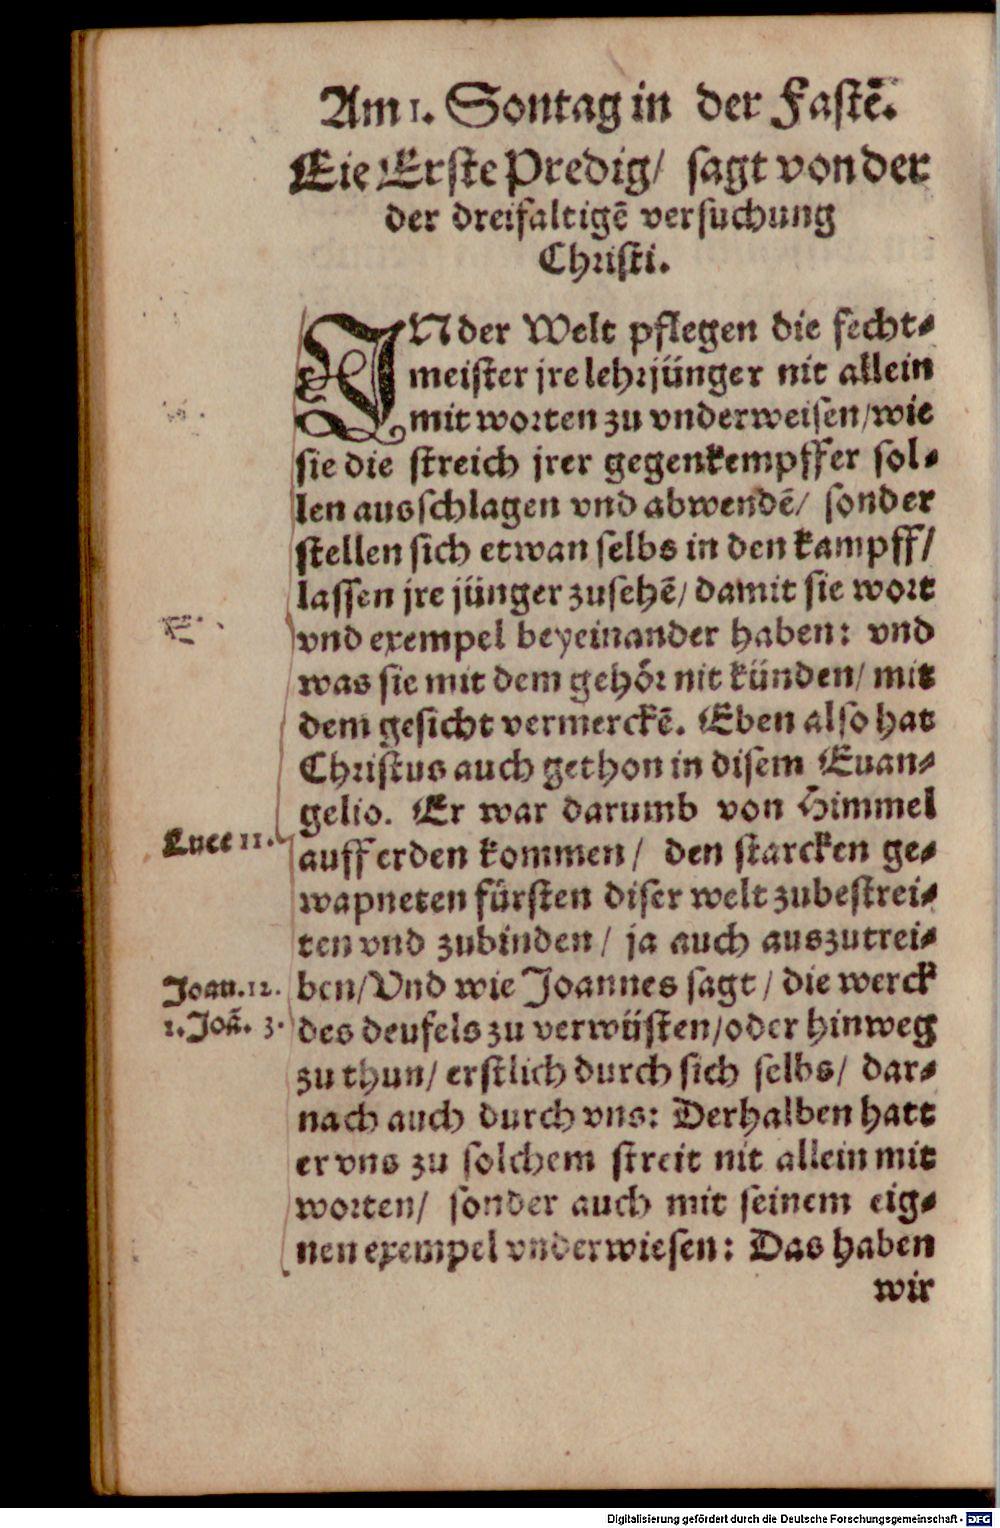 Am 1. Sontag in der Fastē.
Eie Erste Predig/ sagt von der
der dreifaltigē versuchung
Christi.
IN der Welt pflegen die fecht⸗
meister jre lehrjünger nit allein
mit worten zu vnderweisen/wie
sie die streich jrer gegenkempffer sol⸗
len ausschlagen vnd abwendē/ sonder
stellen sich etwan selbs in den kampff/
lassen jre jünger zusehē/ damit sie wort
vnd exempel beyeinander haben: vnd
was sie mit dem gehör nit künden/ mit
dem gesicht vermerckē. Eben also hat
Christus auch gethon in disem Euan⸗
gelio. Er war darumb von Himmel
Luce 11.
auff erden kommen/ den starcken ge⸗
wapneten fürsten diser welt zubestrei⸗
ten vnd zubinden/ ja auch auszutrei⸗
Joan. 12.
ben/Vnd wie Joannes sagt/ die werck
1. Joā. 3.
des deufels zu verwüsten/oder hinweg
zu thun/ erstlich durch sich selbs/ dar⸗
nach auch durch vns: Derhalben hatt
er vns zu solchem streit nit allein mit
worten/ sonder auch mit seinem eig⸗
nen exempel vnderwiesen: Das haben
wir
Digitalisierung gefördert durch die Deutsche Forschungsgemeinschaft - DFG